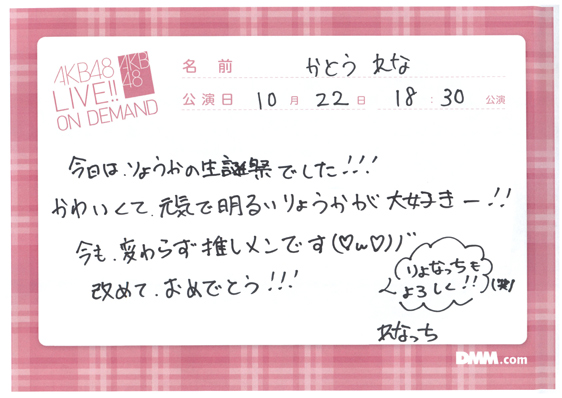 AKB48
LIVE!!
ON DEMAND
AKB
48
名前 かとう れな
公演日 10月 22日 18:30 公演
今日は、りょうかの生誕祭でした!!!
かわいくて、元気で明るいりょうかが大好きー!!
今も、変わらず推しメンです(♡ω♡)ノ"
改めて、おめでとう!!!
りょなっちも
よろしく!! (笑)
れなっち
DMM.com